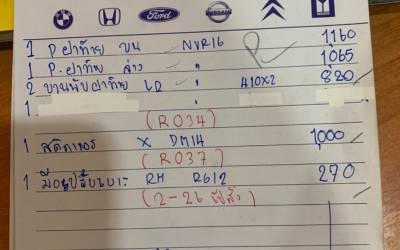 Ford NISSAN
1 P ฝาท้าย บน NVR16 1,160
1 P. ฝาท้าย ล่าง " 1,065
2 บานพับฝาท้าย LD " 410x2 820
1 "
(RO34)
1 สติกเกอร์ X DM14 1,000
(RO37)
1 มือ RH R612 270
(2-26